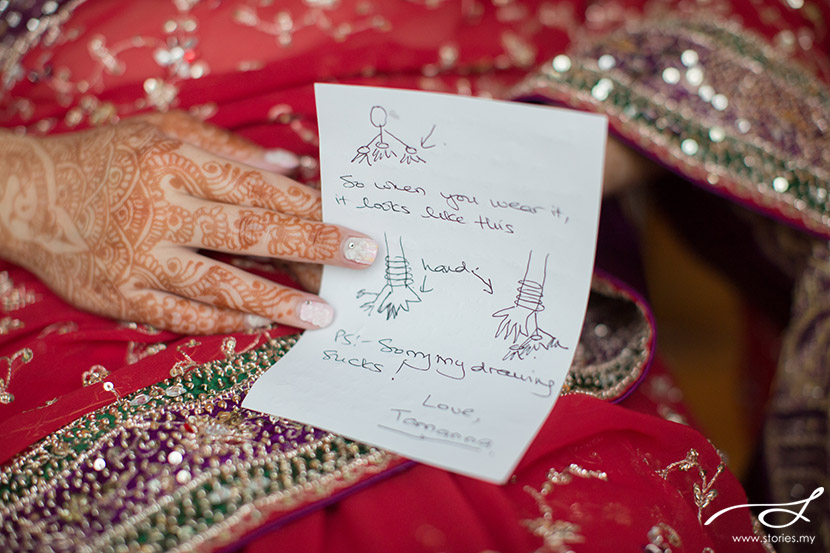 So when you wear it,
it looks like this
hand
PS:- Sorry my drawing
sucks!
Love,
Tamanna
www.stories.my